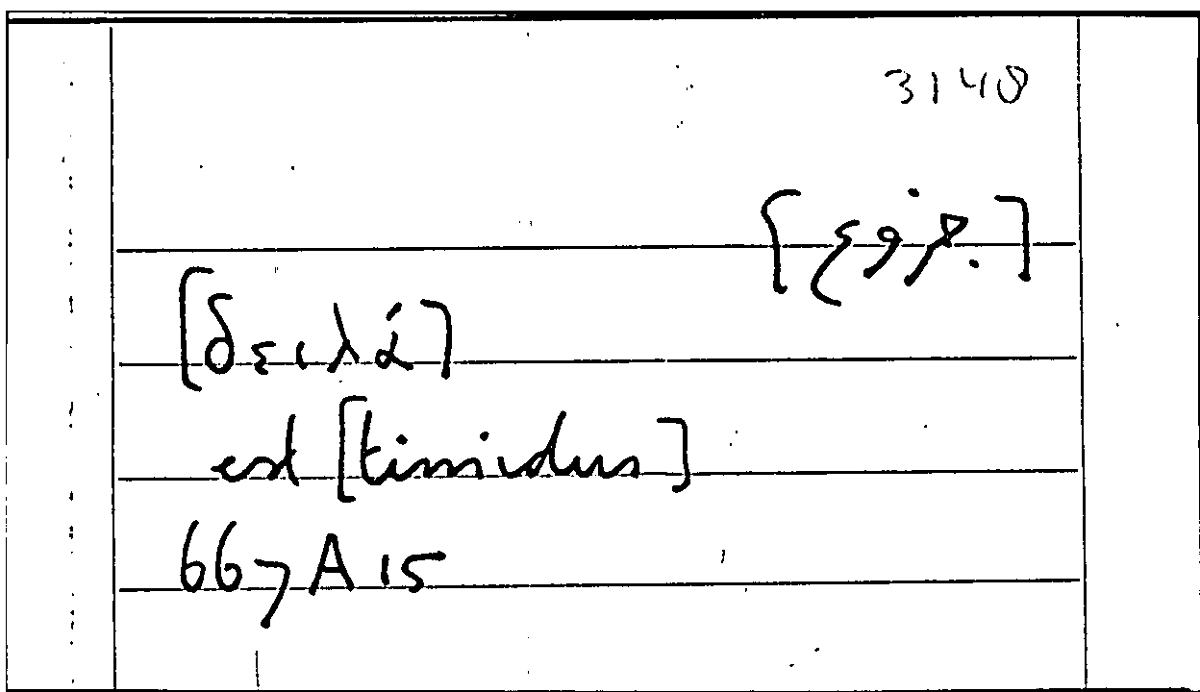 3148
[جزوع]
[δειλά]
est [timidus]
667 A 15